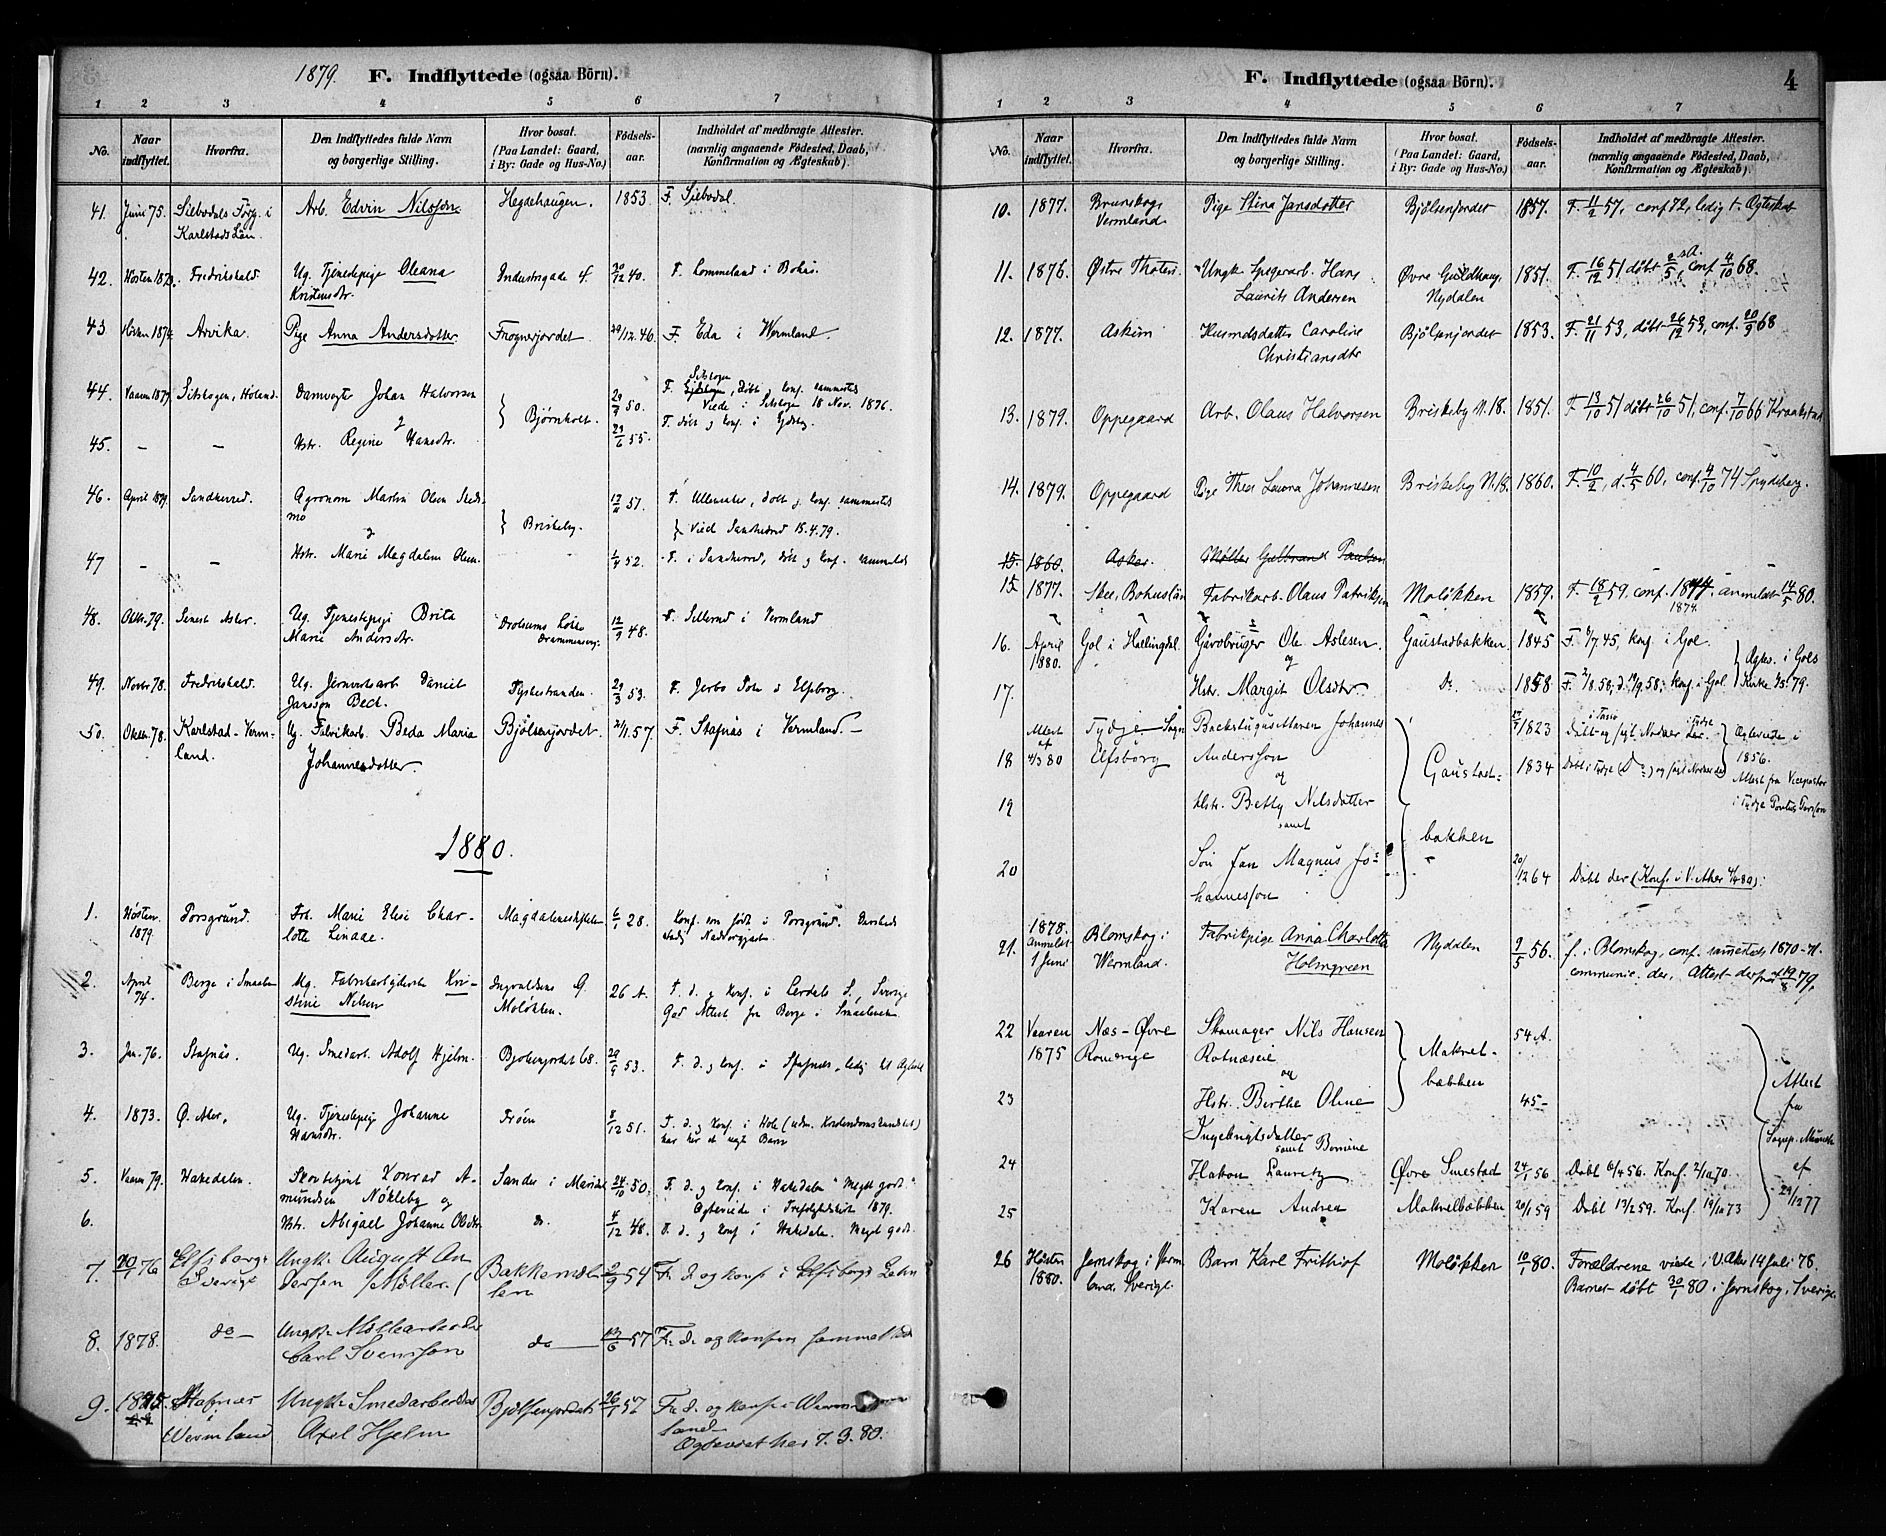 1879. F. Indflyttede (ogsaa Börn).
1 2 3 4 5 6 7
No. Naar indflyttet. Hvorfra. Den Indflyttedes fulde Navn og borgerlige Stilling. Hvor bosat. (Paa Landet: Gaard, i By: Gade og Hus-No.) Fødsels-aar. Indholdet af medbragte Attester. (navnlig angaaende Födested, Daab, Konfirmation og Ægteskab).
41. Juni 75. Silbodals Förs. i Arb. Edvin Nilsson. Hegdehaugen. 1853. F. Silbodal.
Karlstads Län.
42. Hösten 1873. Fredrikshald. Ug. Tjenestepige Oleana Industrigade 4. 20/12 40. F. Lommeland i Bohus.
Kristensdtr.
43 Høsten 1874. Arvika. Pige Anna Andersdotter Frognerjordet. 29/12.46. F. Eda i Wermland.
44. Vaaren 1879. Sitskogen, Höland. Damvogter Johan Halvorsen } Bjørnholt. 29/9 50. F. Sitskogen, döbt og konf. sammested
Viede i Sitskogen 18 Nov. 1876.
45. — — Hstr. Regine Hansdtr. 29/6 55. F. döbt og konf. i
46. April 1879. Sandherred. Agronom Martin Olsen } Briskeby. 12/11 57. F. Ullensaker, döbt og konf. sammested
} Viede Sandherred 15.4.79.
47 — — Hstr. Marie Magdalene Olsen. 1/4 52. F. i Sandherred, döbt og konf. sammested
48. Oktbr. 79. Senest Asker. Ug. Tjenestepige Brita 12/9 48. F. Sillerud i Vermland
Marie Andersdtr. Drammensvej.
49. Novbr 78. Fredrikshald. Ug. Jernverksarb Daniel Tyskestranden. 29/3 53. F. i Elfsborg.
Jansson Beck.
50. Oktbr. 78. Karlstad - Verm- Ug. Fabrikarb. Beda Maria Bjölsenjordet. 21/1.57. F. Stafnäs i Vermland. —
land. Johannesdotter.
1880.
1. Hösten 1879. Porsgrund. Frk. Marie Elise Char- Magdalenestiftelsen 6/1 28. Konf. som født i Porsgrund.
lotte Linaae.
2. April 74. Berge i Smaalen Ug. Fabrikarbeiderske Kri- Ingvaldsens G. 26 A. F. d. og Konf. i Lerdals S., Sverige
stine Nilsen Moløkken. God Attest fra Berge i Smaalenene.
3. Jan. 76. Stafnäs. Ug. Smedarb. Adolf Hjelm. Bjølsenjordet 68. 29/9 53. F. d. og konf. i Stafnäs, ledig til Ægteskab
4. 1873. Ø. Aker, Ug. Tjenestepige Johanne Frøen 8/12 51. F. d. og konf. i Hole (udm. Kristendomskundskab)
Hansdtr. har her et uægte Barn
5. Vaaren 79. Hakedalen. Konrad A- Sander i Maridal 24/10 50. F. d. og konf. i Hakedalen "Meget godt."
mundsen Nökleby og Ægteviede i 1879.
6. Hstr. Abigael Johanne Olsdtr do. 4/12 48. F. d. og konf. i Hakedalen. Meget godt.
7. 20/1 76 Elfsborgs Ungk. August An Bakkemøl 2/9 54 Fr. d. og konf. i Elfsborgs Lehn
Sverige dersen (Møller.) len
8. 1878. do — Ungk. Møllearbeider do — 12/6 57 Fr. d. og konf. sammested
Carl Svensson
9. 1875. Stafnæs Ungk. Smedarbeider Bjølsenjordet 26/1 57 Fr. d. og konf. i Wermland
i Wermland Axel Hjelm Ægteviet her 7. 3. 80.
F. Indflyttede (ogsaa Börn). 4
1 2 3 4 5 6 7
No. Naar indflyttet. Hvorfra. Den Indflyttedes fulde Navn og borgerlige Stilling. Hvor bosat. (Paa Landet: Gaard, i By: Gade og Hus-No.) Fødsels-aar. Indholdet af medbragte Attester. (navnlig angaaende Födested, Daab, Konfirmation og Ægteskab).
10. 1877. Brunskogs Pige Stina Jansdotter Bjølsenjordet 1857. F. 11/2 57, conf 72, ledig t. Ægteskab
Vermland
11. 1876. Østre Thoten Ungk Spigerarb. Hans Øvre Guldhaug, 1851. F. 16/12 51 döbt 2/5 s.A., conf 4/10 68.
Laurits Andersen Nydalen
12. 1877. Askim Husmdsdatter Caroline Bjölsenjordet 1853. F. 21/11 53, döbt 26/12 53, conf. 20/9 68
Christiansdtr
13. 1879. Oppegaard Arb. Olaus Halvorsen Briskeby N.18. 1851. F. 13/10 51 döbt 26/10 51, conf. 7/10 66 Kraakstad
14. 1879. Oppegaard Pige Thea Laura Johannesen Briskeby N.18. 1860. F. 10/2, d. 4/5 60, conf. 4/10 74 Spydeberg.
15. 1860. Asker. Møller Gulbrand Paulsen
15. 1877. Skee, Bohuslän Fabrikarb. Olaus Patriksen Moløkken 1859. F. 18/2 59. conf. 1874. anmeldt 14/5 80.
16. April 1880. Gol i Hallingdal. Gårdbruger Ole Aslesen. Gaustadbakken. 1845 F. 6/7.45, konf. i Gol.
og } Ægtev. i Gols
17. Hstr. Margit Olsdtr. Do 1858. F. 7/8.58, d. 19/9.58, konf. i Gol. Kirke 79.
Attest af 4/3 80 Tydje Sogn Backstugusittaren Johannes 1823 Døbt og
18 Elfsborg Andersson } Gaustad- } Ægteviede i
og 1834 Døbt i Tydje 1856.
19 Hstr. Betty Nilsdotter Attest fra Vicepastor
samt bakken i Tydje
20 Søn Jan Magnus Jo- 20/12 64 Døbt der (Konf. i V. Aker 4/4 80).
hannesson
21. 1878. Anmeldt 1 Juni Blomskog i Fabrikpige Anna Charlotta Nydalen 9/5 56. f. i Blomskog, conf. sammesteds 1870 -
Wermland. Holmgreen communic. der, Attest derfra 19/8 79.
22 Vaaren Næs - Øvre Skomager Nils Hansen } Makrel- 54 A.
1875 Romerige Rotnæseie bækken } Attest
og fra
23 Hstr. Birthe Oline 45 — Sogep. Munch
Ingebrigtsdatter af
samt Børnene 29/12 77
24 Hakon Lauritz Øvre Smestad 24/1 56 Døbt 6/4 56. Konf. 2/10 70
25 Karen Andrea Makrelbækken 20/1 59 Døbt 13/2 59. Konf. 19/10 73
26 Høsten Jernskog i Verm Barn Karl Frithiof Moløkken 10/1 80. Forældrene viede i V. Aker 14 Juli 78.
1880. land, Sverige Barnet døbt 30/1 80 i Jernskog, Sverige.